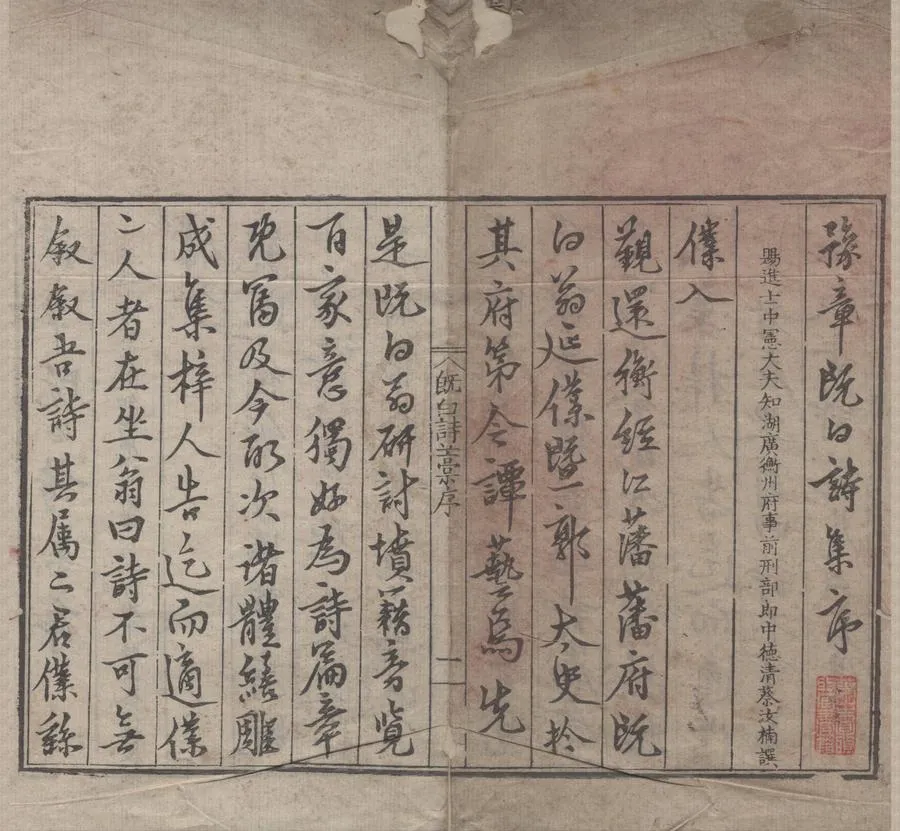 豫章既白詩集序
賜進士中憲大夫知湖廣衡州府事前刑部郎中德清蔡汝楠譔
僕入
覲還衡經江藩藩府既
白翁延僕暨郭太史於
其府第令譚藝焉先
既白詩藁序
一
是既白翁研討墳籍旁覽
百家意獨好為詩篇章
既富及今酌次諸體繕雕
成集梓人告迄而適僕
二人者在坐翁曰詩不可無
敘敘吾詩其属二君僕緜